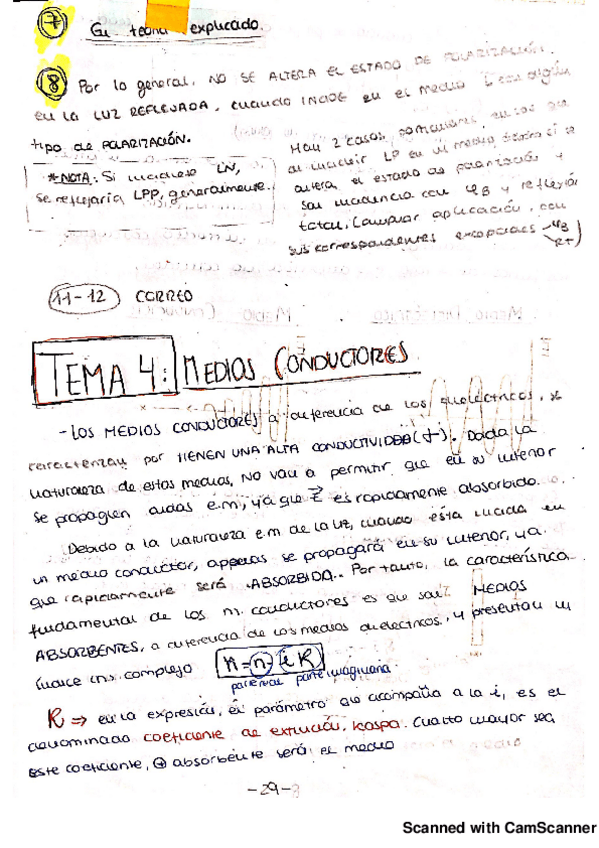 7 En teoría explicado.
8 Por lo general, NO SE ALTERA EL ESTADO DE POLARIZACIÓN
EN LA LUZ REFLEJADA, cuando INCIDE en el medio con algún
tipo de POLARIZACIÓN.
*NOTA: Si incidiese LN,
se reflejaría LPP, generalmente.
Hay 2 casos particulares en los que
al incidir LP en un medio sí se
altera el estado de polarización y
son incidencia con φB y reflexión
total. (ampliar aplicación, con
sus correspondientes excepciones φB
RT)
11-12 CORREO
TEMA 4: MEDIOS CONDUCTORES
- LOS MEDIOS CONDUCTORES a diferencia de los dieléctricos, se
caracterizan por TIENEN UNA ALTA CONDUCTIVIDAD (σ). Dada la
naturaleza de estos medios, NO van a permitir que en su interior
se propaguen ondas e.m, ya que E es rapidamente absorbido.
Debido a la naturaleza e.m de la luz, cuando esta incida en
un medio conductor, apenas se propagará en su interior, ya
que rapidamente será ABSORBIDA. Por tanto, la característica
fundamental de los m. conductores es que son MEDIOS
ABSORBENTES, a diferencia de los medios dieléctricos, y presentan un
índice (n) complejo n = n - i K
parte real parte imaginaria
K ⇒ en la expresión, el parámetro que acompaña a la i, es el
denominado coeficiente de extinción, kappa. Cuanto mayor sea
este coeficiente, ⊕ absorbente será el medio
- 29 -
Scanned with CamScanner